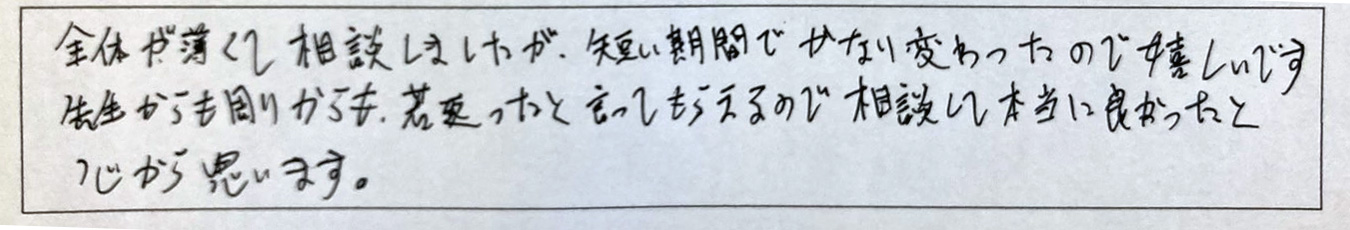 全体が薄くて相談しましたが、短い期間でかなり変わったので嬉しいです
先生からも周りからも、若返ったと言ってもらえるので相談して本当に良かったと
心から思います。